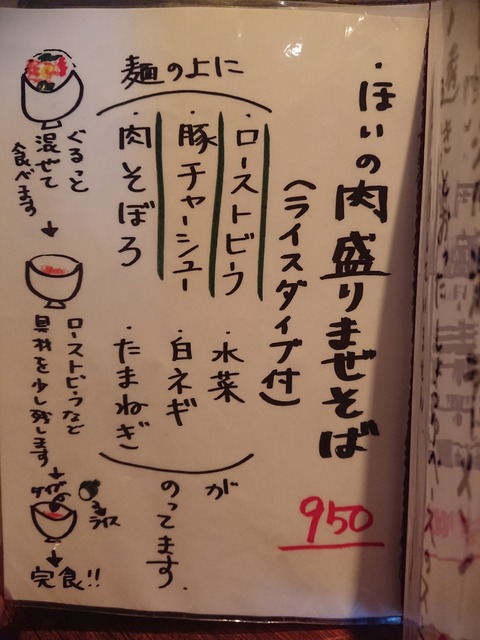 ・ほいの肉盛りまぜそば
(ライスダイブ付)
950
麺の上に
・ローストビーフ
・豚チャーシュー
・肉そぼろ
・水菜
・白ネギ
・たまねぎ
が
のってます.
ぐるっと
混ぜて
食べます
ローストビーフなど
具材を少し残します
ダイブ
ライス
完食!!